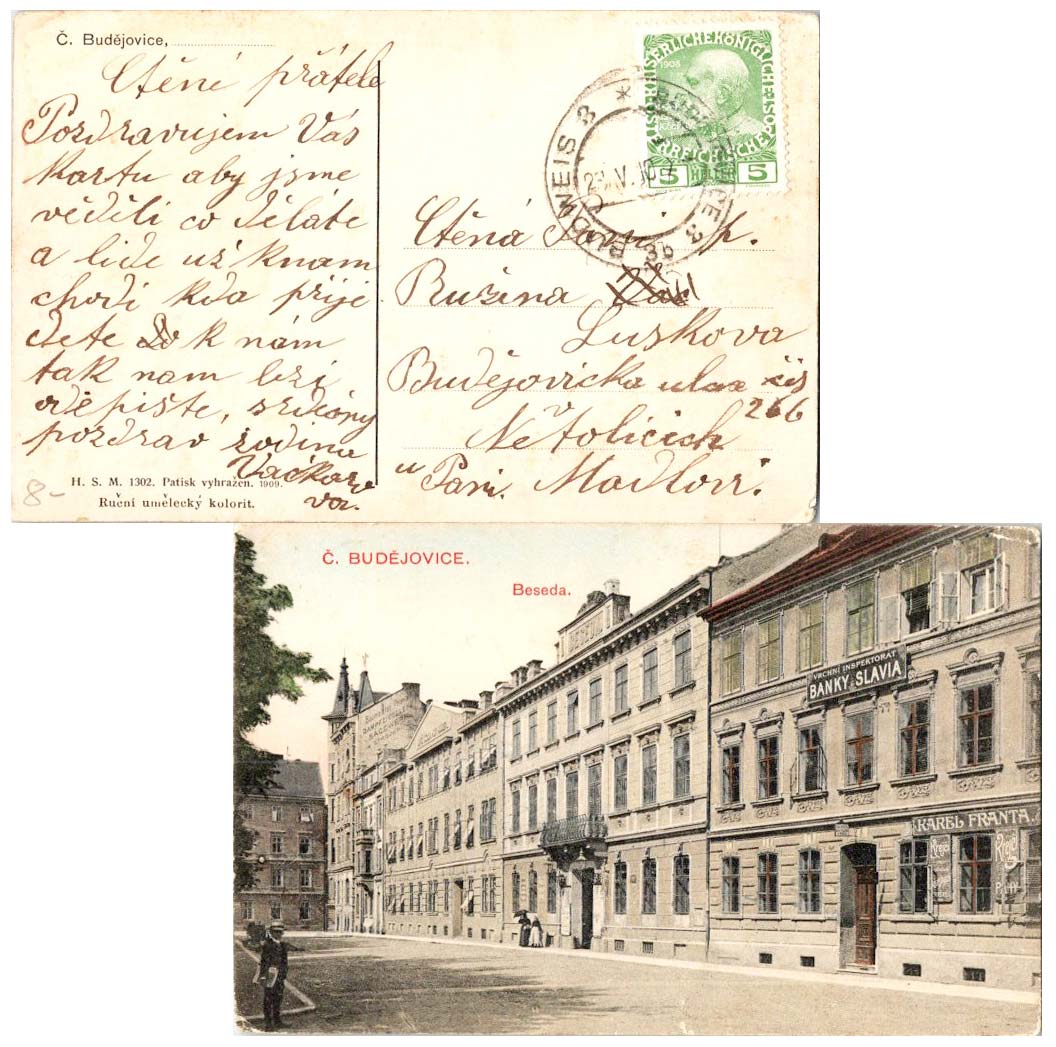 Č. Budějovice,
Ctěné přátele
Pozdravujem Vás
kartu aby jsme
věděli co děláte
a lide už knam
chodi kda přije
dete k nám
tak nam brzi
odepište, srdečny
pozdrav rodina
Vackar
H. S. M. 1302. Patisk vyhražen. 1909.
Ruční umělecký kolorit.
8-
KAISERLICHE KÖNIGLICHE ÖSTERREICHISCHE
1908
5 HELLER 5
BUDWEIS 3
BUDĚJOVICE 3
V.10
3b
Ctěná
Ružina
Luskova
Budějovicka ulice čis
266
Netolicich
u Pani Madlovi.
Č. BUDĚJOVICE.
Beseda.
BESEDA
VRCHNÍ INSPEKTORÁT
BANKY SLAVIA
KAREL FRANTA